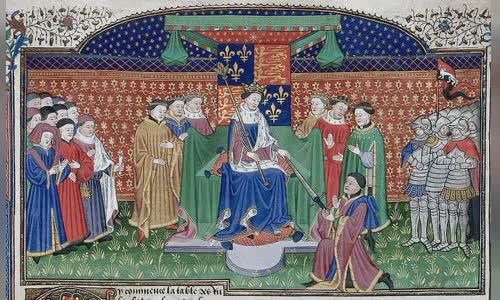 Cy commence la table des